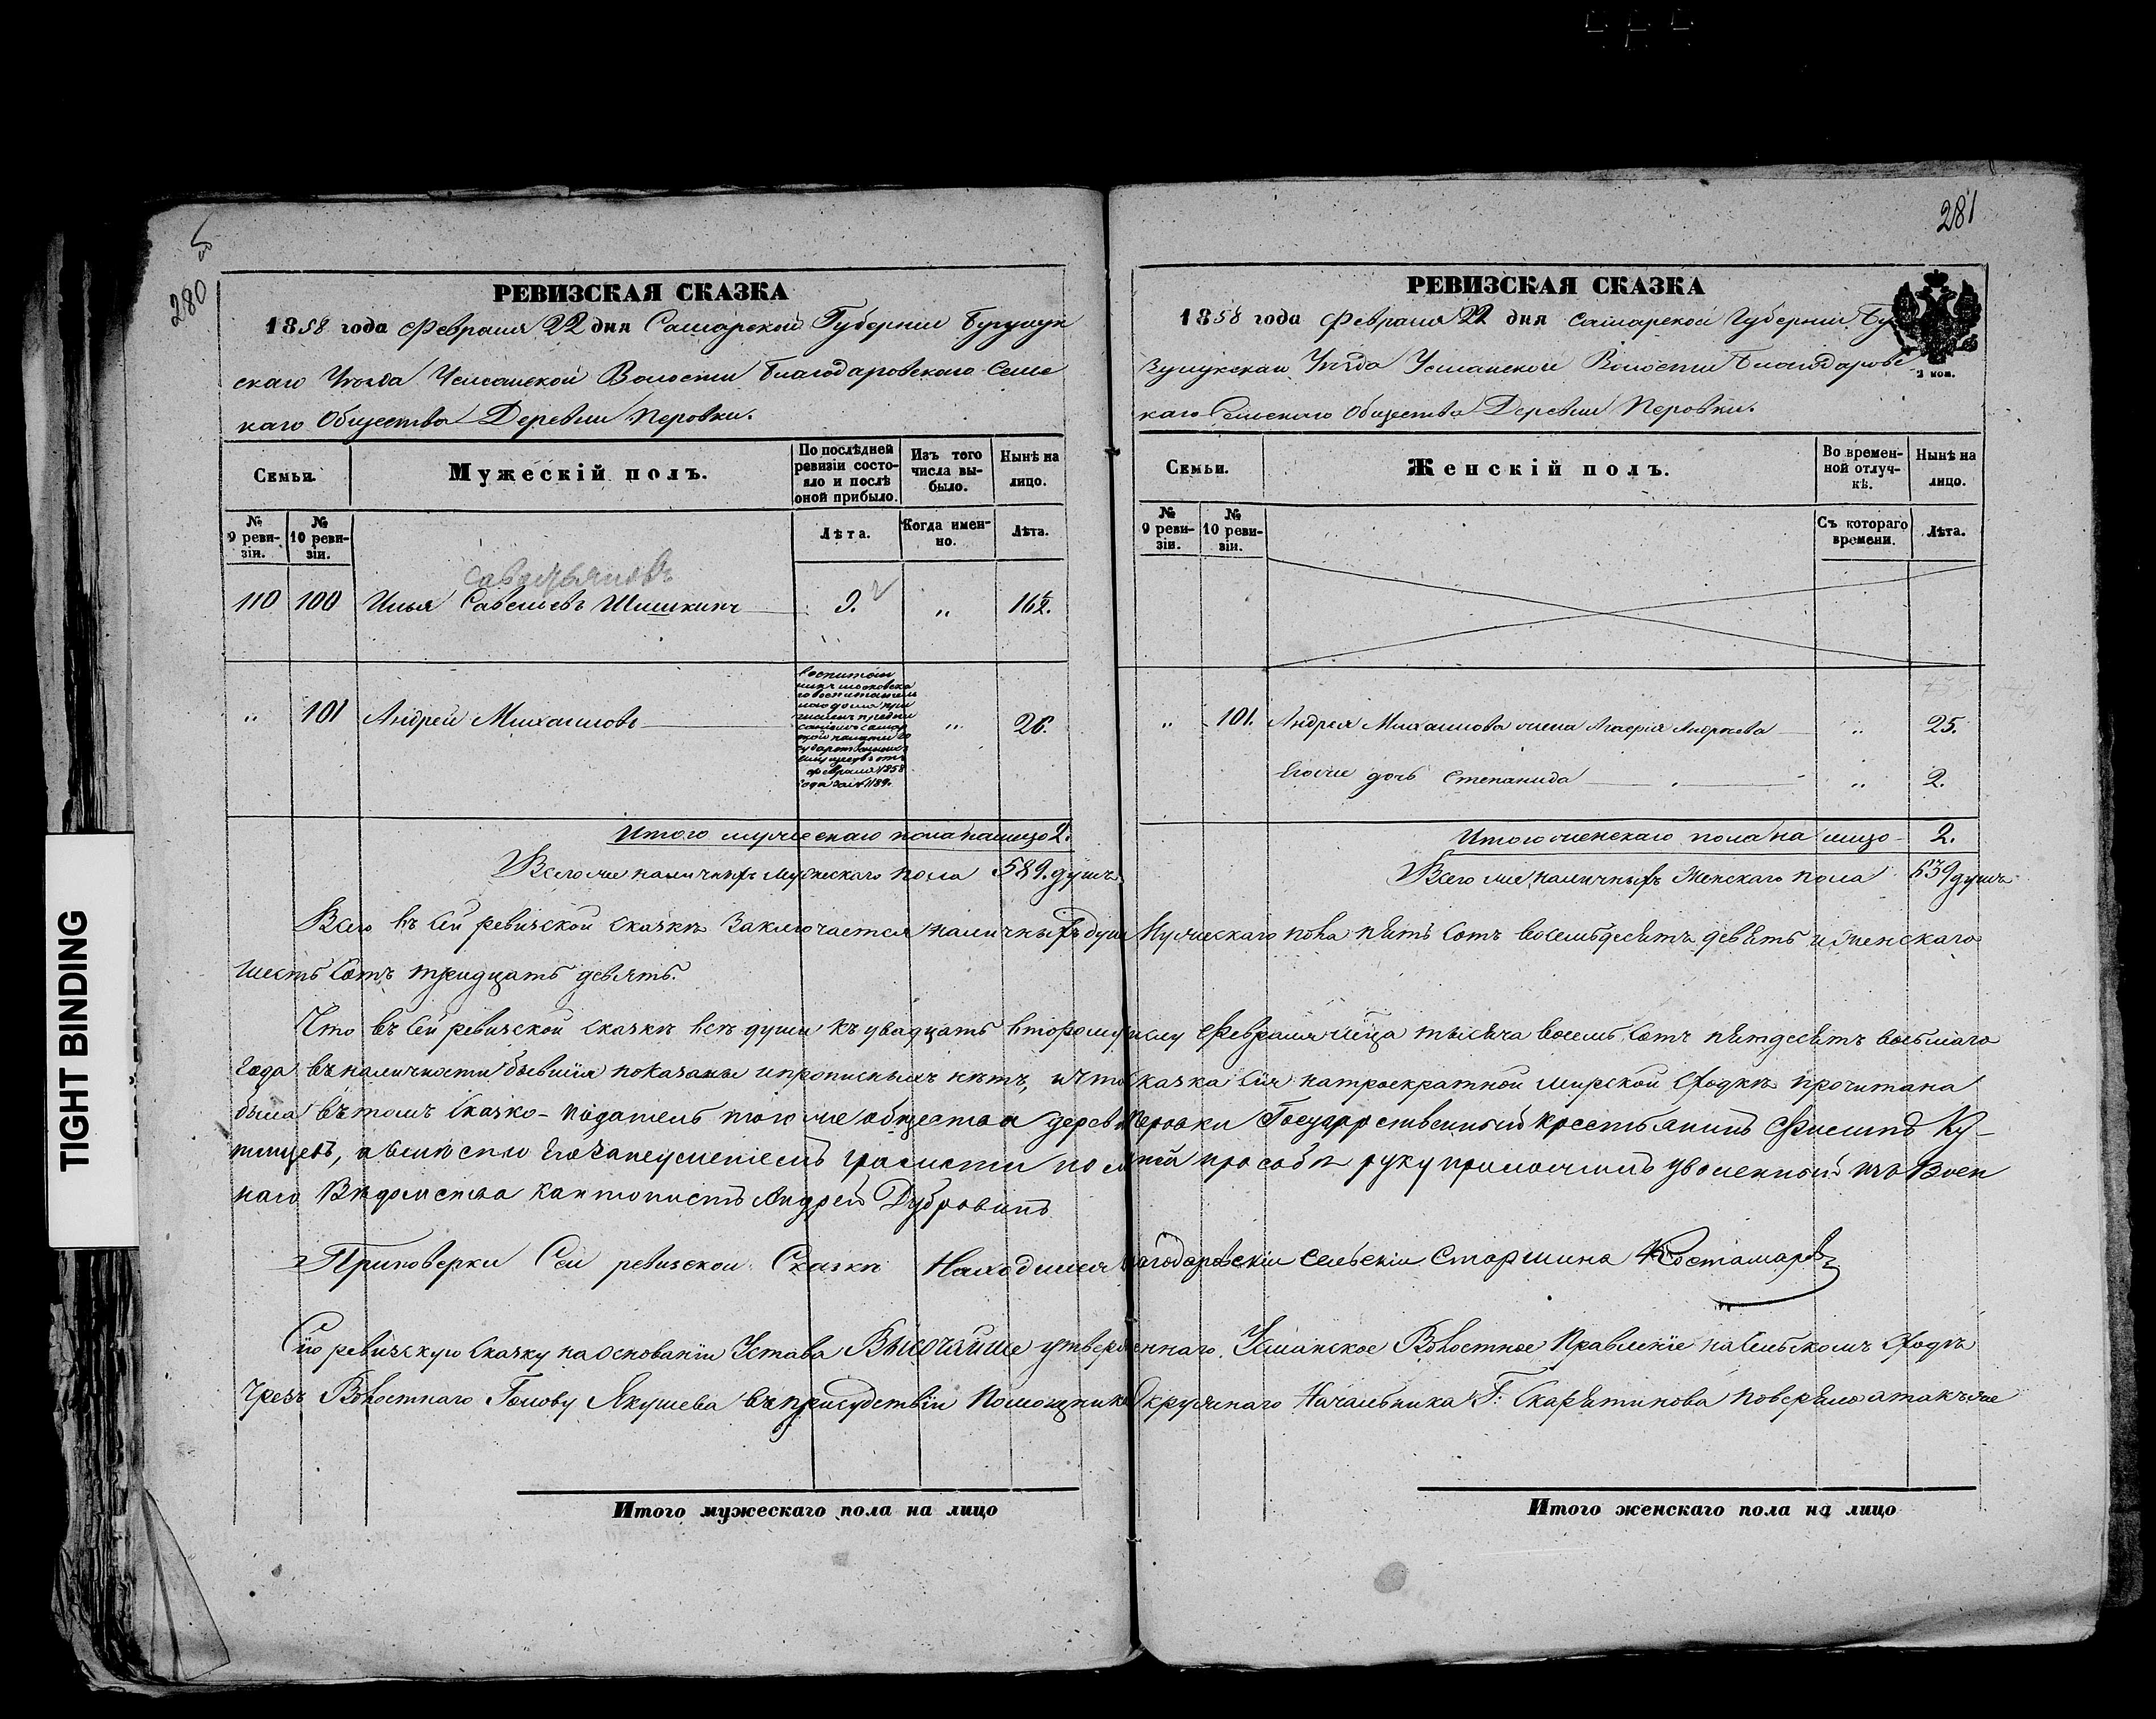 280
РЕВИЗСКАЯ СКАЗКА
1858 года Февраля 22 дня Самарской Губернии Бузулук
скаго Уѣзда Усманской Волости Благодаровскаго Сельс
каго Общества Деревни Перовки.
Семьи.
Мужескій полъ.
По послѣдней ревизіи состояло и послѣ оной прибыло.
Изъ того числа выбыло.
Нынѣ на лицо.
№ 9 ревизіи.
№ 10 ревизіи.
Лѣта.
Когда именно.
Лѣта.
Савастьяновъ
110 100 Илья Савельевъ Шишкинъ 9. „ 16½.
„ 101 Андрей Михайловъ „ 26.
Воспитан
никъ московска
го воспитатель
наго дома при
численъ предпи
саніемъ Самар
ской палаты Го
сударственныхъ
имуществъ отъ
февраля 1858
года за № 1189.
Итого мужескаго пола на лицо 2.
Всего же наличныхъ мужескаго пола 589. душъ
281
РЕВИЗСКАЯ СКАЗКА
1858 года Февраля 22 дня Самарской Губерніи Бу
зулукскаго Уѣзда Усманской Волости Благодаровс
каго Сельскаго Общества Деревни Перовки.
Семьи.
Женскій полъ.
Во временной отлучкѣ.
Нынѣ на лицо.
№ 9 ревизіи.
№ 10 ревизіи.
Съ котораго времени.
Лѣта.
„ 101. Андрея Михайлова жена Агафія Андреева „ 25.
Его же дочь Степанида „ 2.
Итого женскаго пола на лицо 2.
Всего же наличныхъ Женскаго пола 639 душъ
Всего въ сей ревизской сказкѣ заключается наличныхъ душъ Мужескаго пола пять сотъ восемьдесятъ девять и женскаго
шесть сотъ тридцать девять.
Что въ сей ревизской сказкѣ всѣ души къ двадцать второму числу Февраля мѣца тысяча восемь сотъ пятдесятъ восьмаго
года въ наличности бывшія показаны и прописныхъ нѣтъ, и что сказка сія на троекратной мирской сходкѣ прочитана
была въ томъ сказко-податель того же общества деревни Перовки Государственный крестьянинъ Филипъ Ку-
, а вмѣсто его за неумениемъ грамоты по личной прозьбѣ руку приложилъ уволенный изъ Воен
наго Вѣдомства кантонистъ Андрей Дубровинъ
При поверки Сей ревизской Сказки Находился Благодаровскій сельскій старшина Костамаровъ
Сію ревизскую сказку на основаніи Устава Высочайше утвержденнаго. Усманское Волостное Правленіе на сельскомъ сходѣ
чрезъ Волостнаго Голову Якушева въ присудствіи Помощника Окружнаго Начальника Г: Скарятинова поверяло а такъ же
Итого мужескаго пола на лицо
Итого женскаго пола на лицо
TIGHT BINDING